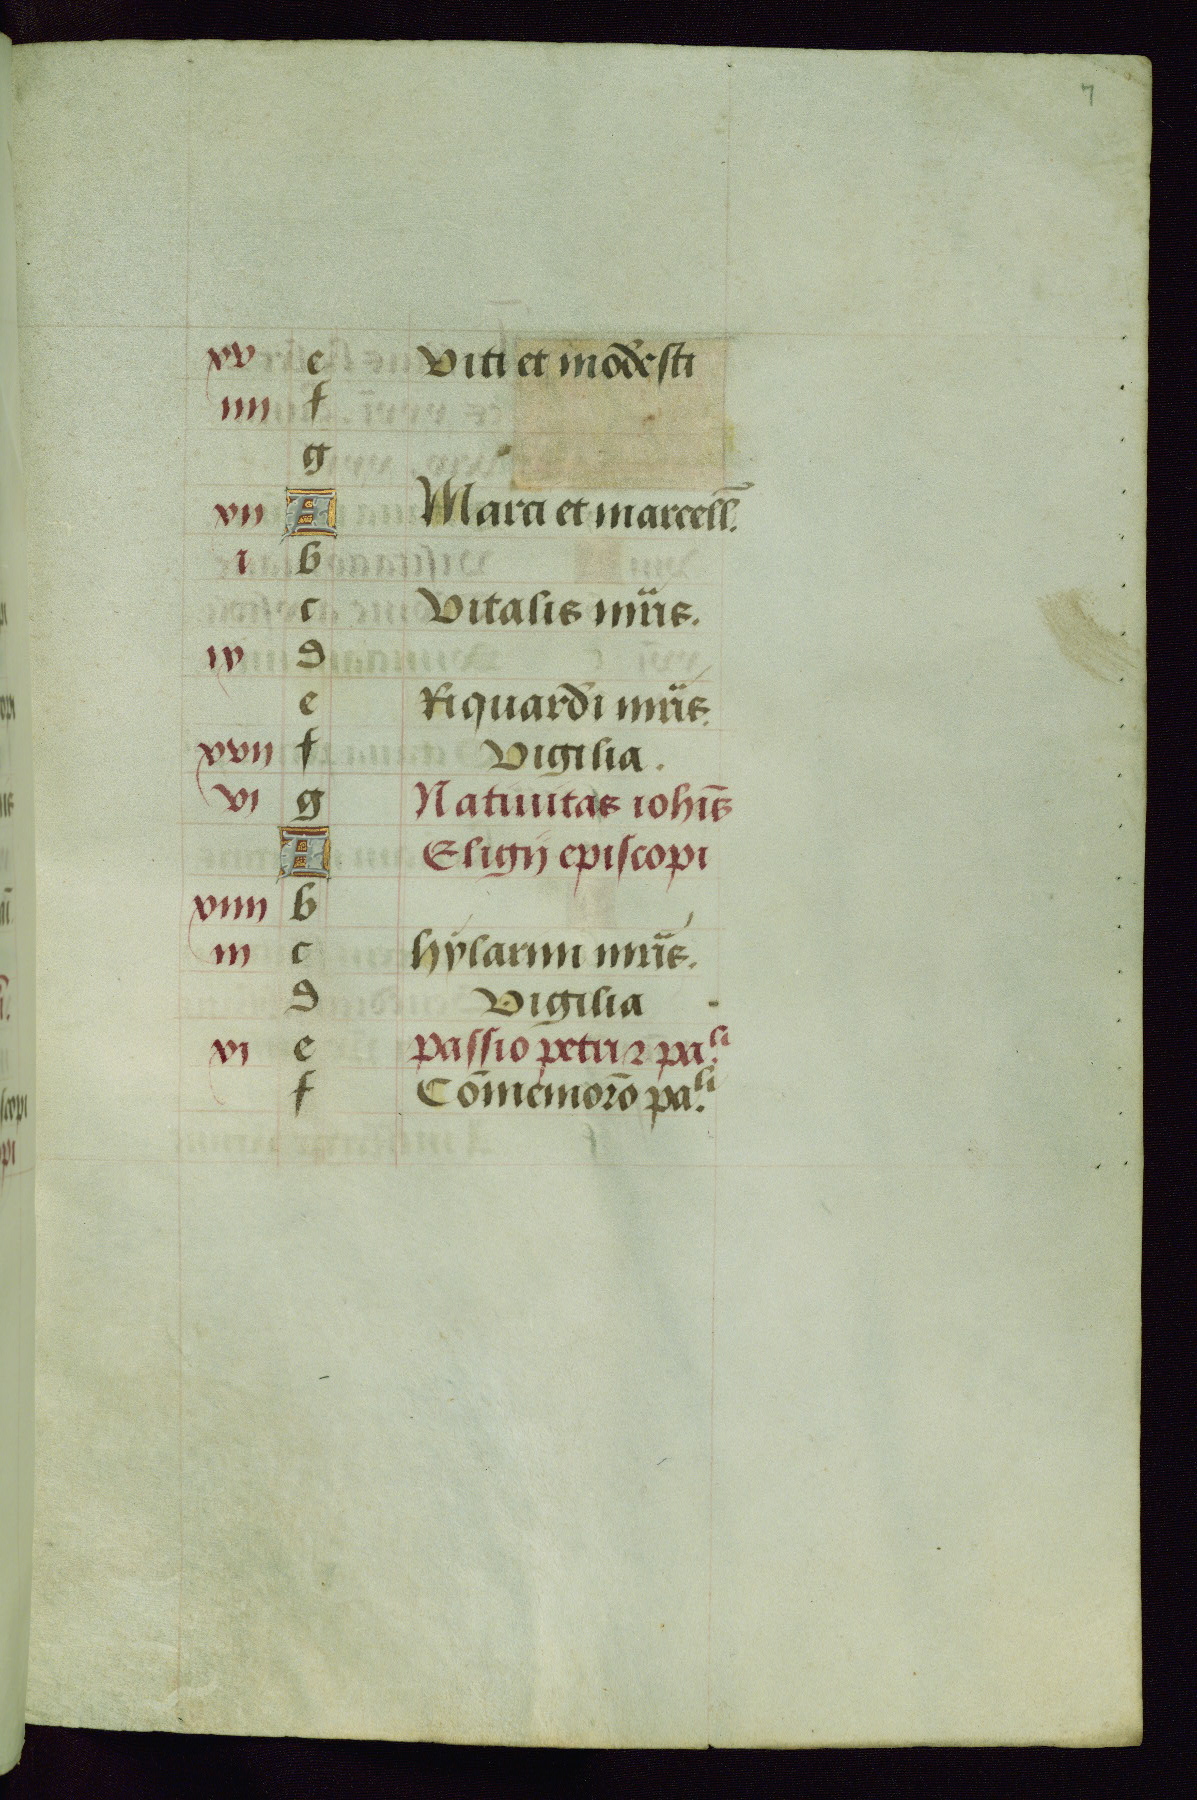 7
xv e Viti et modesti
iiii f
g
vii A Marci et marcell̄.
i b
c Vitalis mr̄is.
xv d
e Riquardi mr̄is.
xvii f Vigilia.
vi g Natiuitas iohīs
A Eligij episcopi
viiii b
iii c hylarini mr̄is.
d Vigilia
vi e passio petri ⁊ pali
f Cōmemorō pali